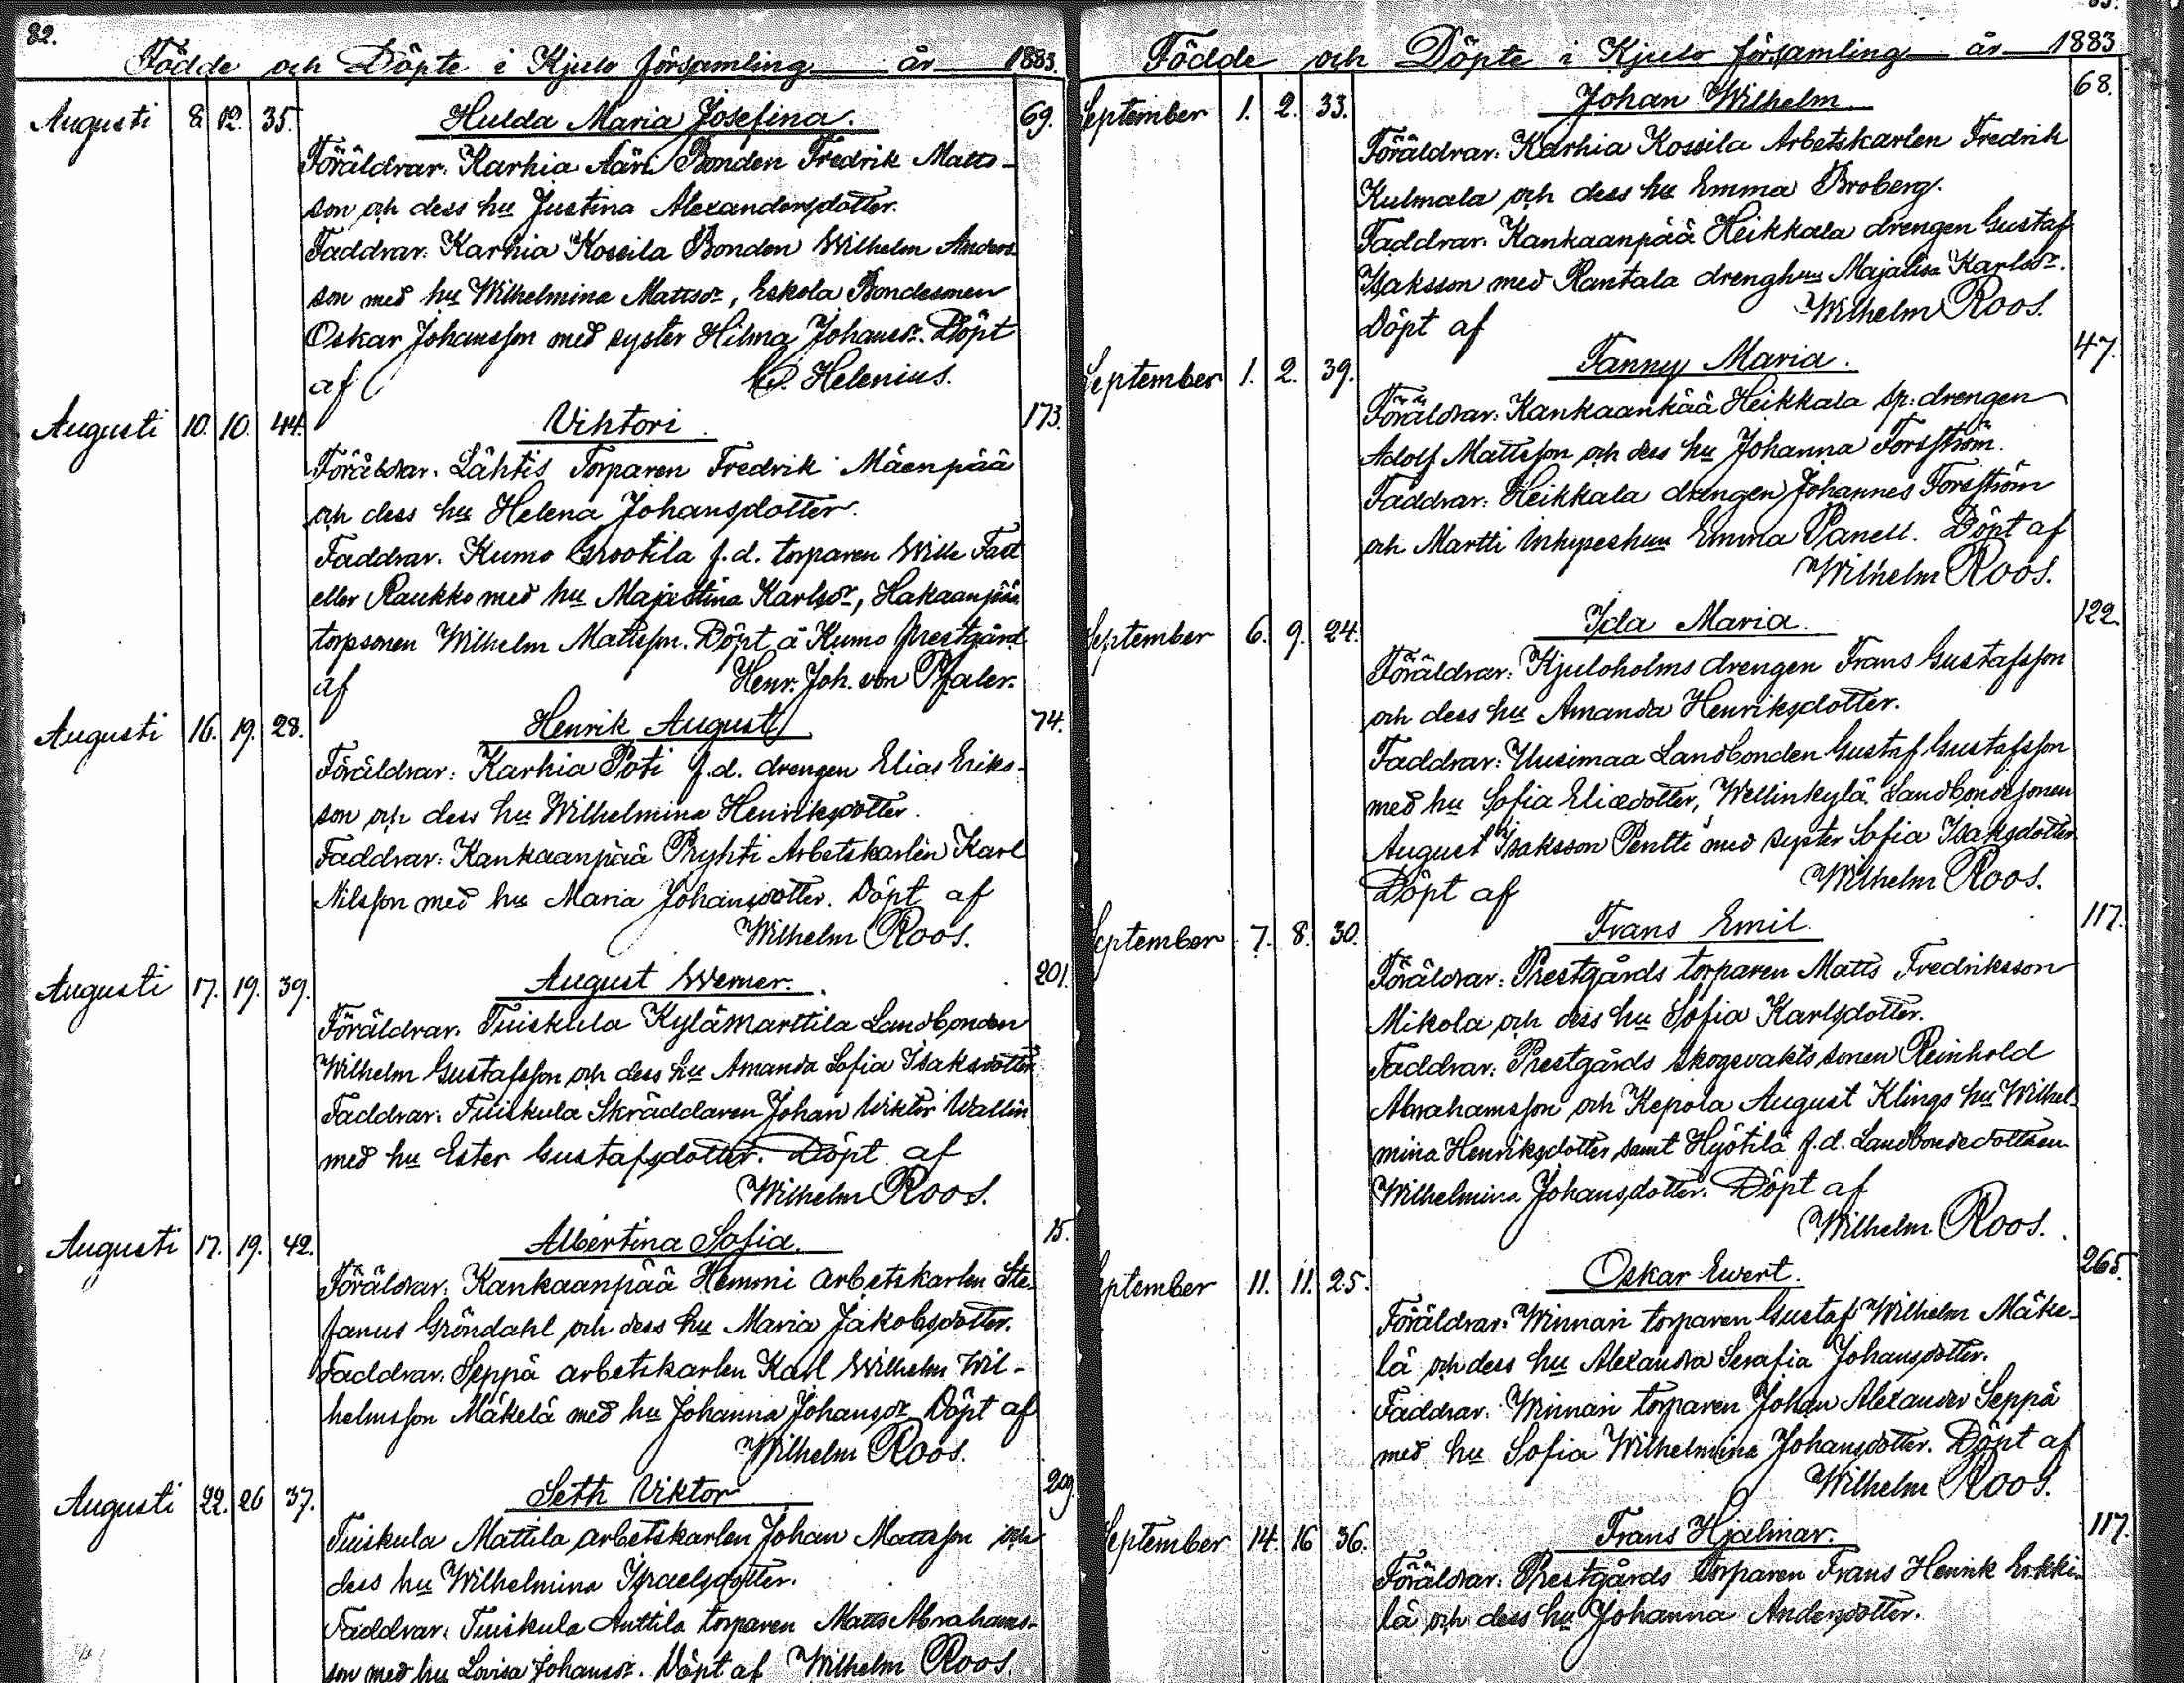 82.
Födde och Döpte i Kjulo församling år 1883.
Augusti 8. 12. 35. Hulda Maria Josefina. 69.
Föräldrar: Karhia Ääri Bonden Fredrik Matts-
son och dess hu Justina Alexandersdotter.
Faddrar: Karhia Kossila Bonden Wilhelm Anders-
son med hu Wilhelmina Mattsdr, Eskola Bondesonen
Oskar Johansson med syster Hilma Johansdr. Döpt
af Helenius.
Augusti 10. 10. 44. Vihtori. 173.
Föräldrar: Lähtis Torparen Fredrik Mäenpää
och dess hu Helena Johansdotter.
Faddrar. Kumo Grootila f.d. torparen Wille Fast
eller Raukko med hu Maja Stina Karlsdr, Hakaanpää
torpsonen Wilhelm Mattsson. Döpt å Kumo Prestgård
af Henr. Joh. von Pfaler.
Augusti 16. 19. 28. Henrik August 74.
Föräldrar: Karhia Poti f.d. drengen Elias Eriks-
son och dess hu Wilhelmina Henriksdotter.
Faddrar: Kankaanpää Pryhti Arbetskarlen Karl
Nilsson med hu Maria Johansdotter. Döpt af
Wilhelm Roos.
Augusti 17. 19. 39. August Werner. 201.
Föräldrar: Tuiskula Kylämarttila Landbonden
Wilhelm Gustafsson och dess hu Amanda Sofia Isaksdotter
Faddrar: Tuiskula Skräddaren Johan Wiktor Wallin
med hu Ester Gustafsdotter. Döpt af
Wilhelm Roos.
Augusti 17. 19. 42. Albertina Sofia. 15.
Föräldrar: Kankaanpää Hemmi arbetskarlen Ste-
fanus Gröndahl och dess hu Maria Jakobsdotter.
Faddrar: Seppä arbetskarlen Karl Wilhelm Wil-
helmsson Mäkelä med hu Johanna Johansdr Döpt af
Wilhelm Roos.
Augusti 22. 26 37. Seth Viktor 209
Tuiskula Mattila arbetskarlen Johan Mattsson och
dess hu Wilhelmina Israelsdotter.
Faddrar: Tuiskula Anttila torparen Matts Abrahams-
son med hu Lovisa Johansdr. Döpt af Wilhelm Roos.
Födde och Döpte i Kjulo församling år 1883
September 1. 2. 33. Johan Wilhelm 68.
Föräldrar: Karhia Kossila Arbetskarlen Fredrik
Kulmala och dess hu Emma Broberg.
Faddrar: Kankaanpää Heikkala drengen Gustaf
Isaksson med Rantala drenghun Majalisa Karlsdr.
Döpt af Wilhelm Roos.
September 1. 2. 39. Fanny Maria. 47.
Föräldrar: Kankaankää Heikkala sp: drengen
Adolf Mattsson och dess hu Johanna Forsström.
Faddrar: Heikkala drengen Johannes Forsström
och Martti inhyseshun Emma Panell. Döpt af
Wilhelm Roos.
September 6. 9. 24. Ida Maria. 122
Föräldrar: Kjuloholms drengen Frans Gustafsson
och dess hu Amanda Henriksdotter.
Faddrar: Uusimaa Landbonden Gustaf Gustafsson
med hu Sofia Eliædotter, Wellinkylä Landbondesonen
August Isaksson Pentti med syster Sofia Isaksdotter
Döpt af Wilhelm Roos.
September 7. 8. 30. Frans Emil. 117.
Föräldrar: Prestgårds torparen Matts Fredriksson
Mikola och dess hu Sofia Karlsdotter.
Faddrar: Prestgårds skogsvakts sonen Reinhold
Abrahamsson och Kepola August Klings hu Wilhel-
mina Henriksdotter samt Hyötilä f.d. Landbondedottren
Wilhelmina Johansdotter. Döpt af
Wilhelm Roos.
September 11. 11. 25. Oskar Ewert. 265.
Föräldrar: Winnari torparen Gustaf Wilhelm Mäke-
lä och dess hu Alexandra Serafia Johansdotter.
Faddrar: Winnari torparen Johan Alexander Seppä
med hu Sofia Wilhelmina Johansdotter. Döpt af
Wilhelm Roos.
September 14. 16 36. Frans Hjalmar. 117.
Föräldrar: Prestgårds torparen Frans Henrik Erkki-
lä och dess hu Johanna Andersdotter.